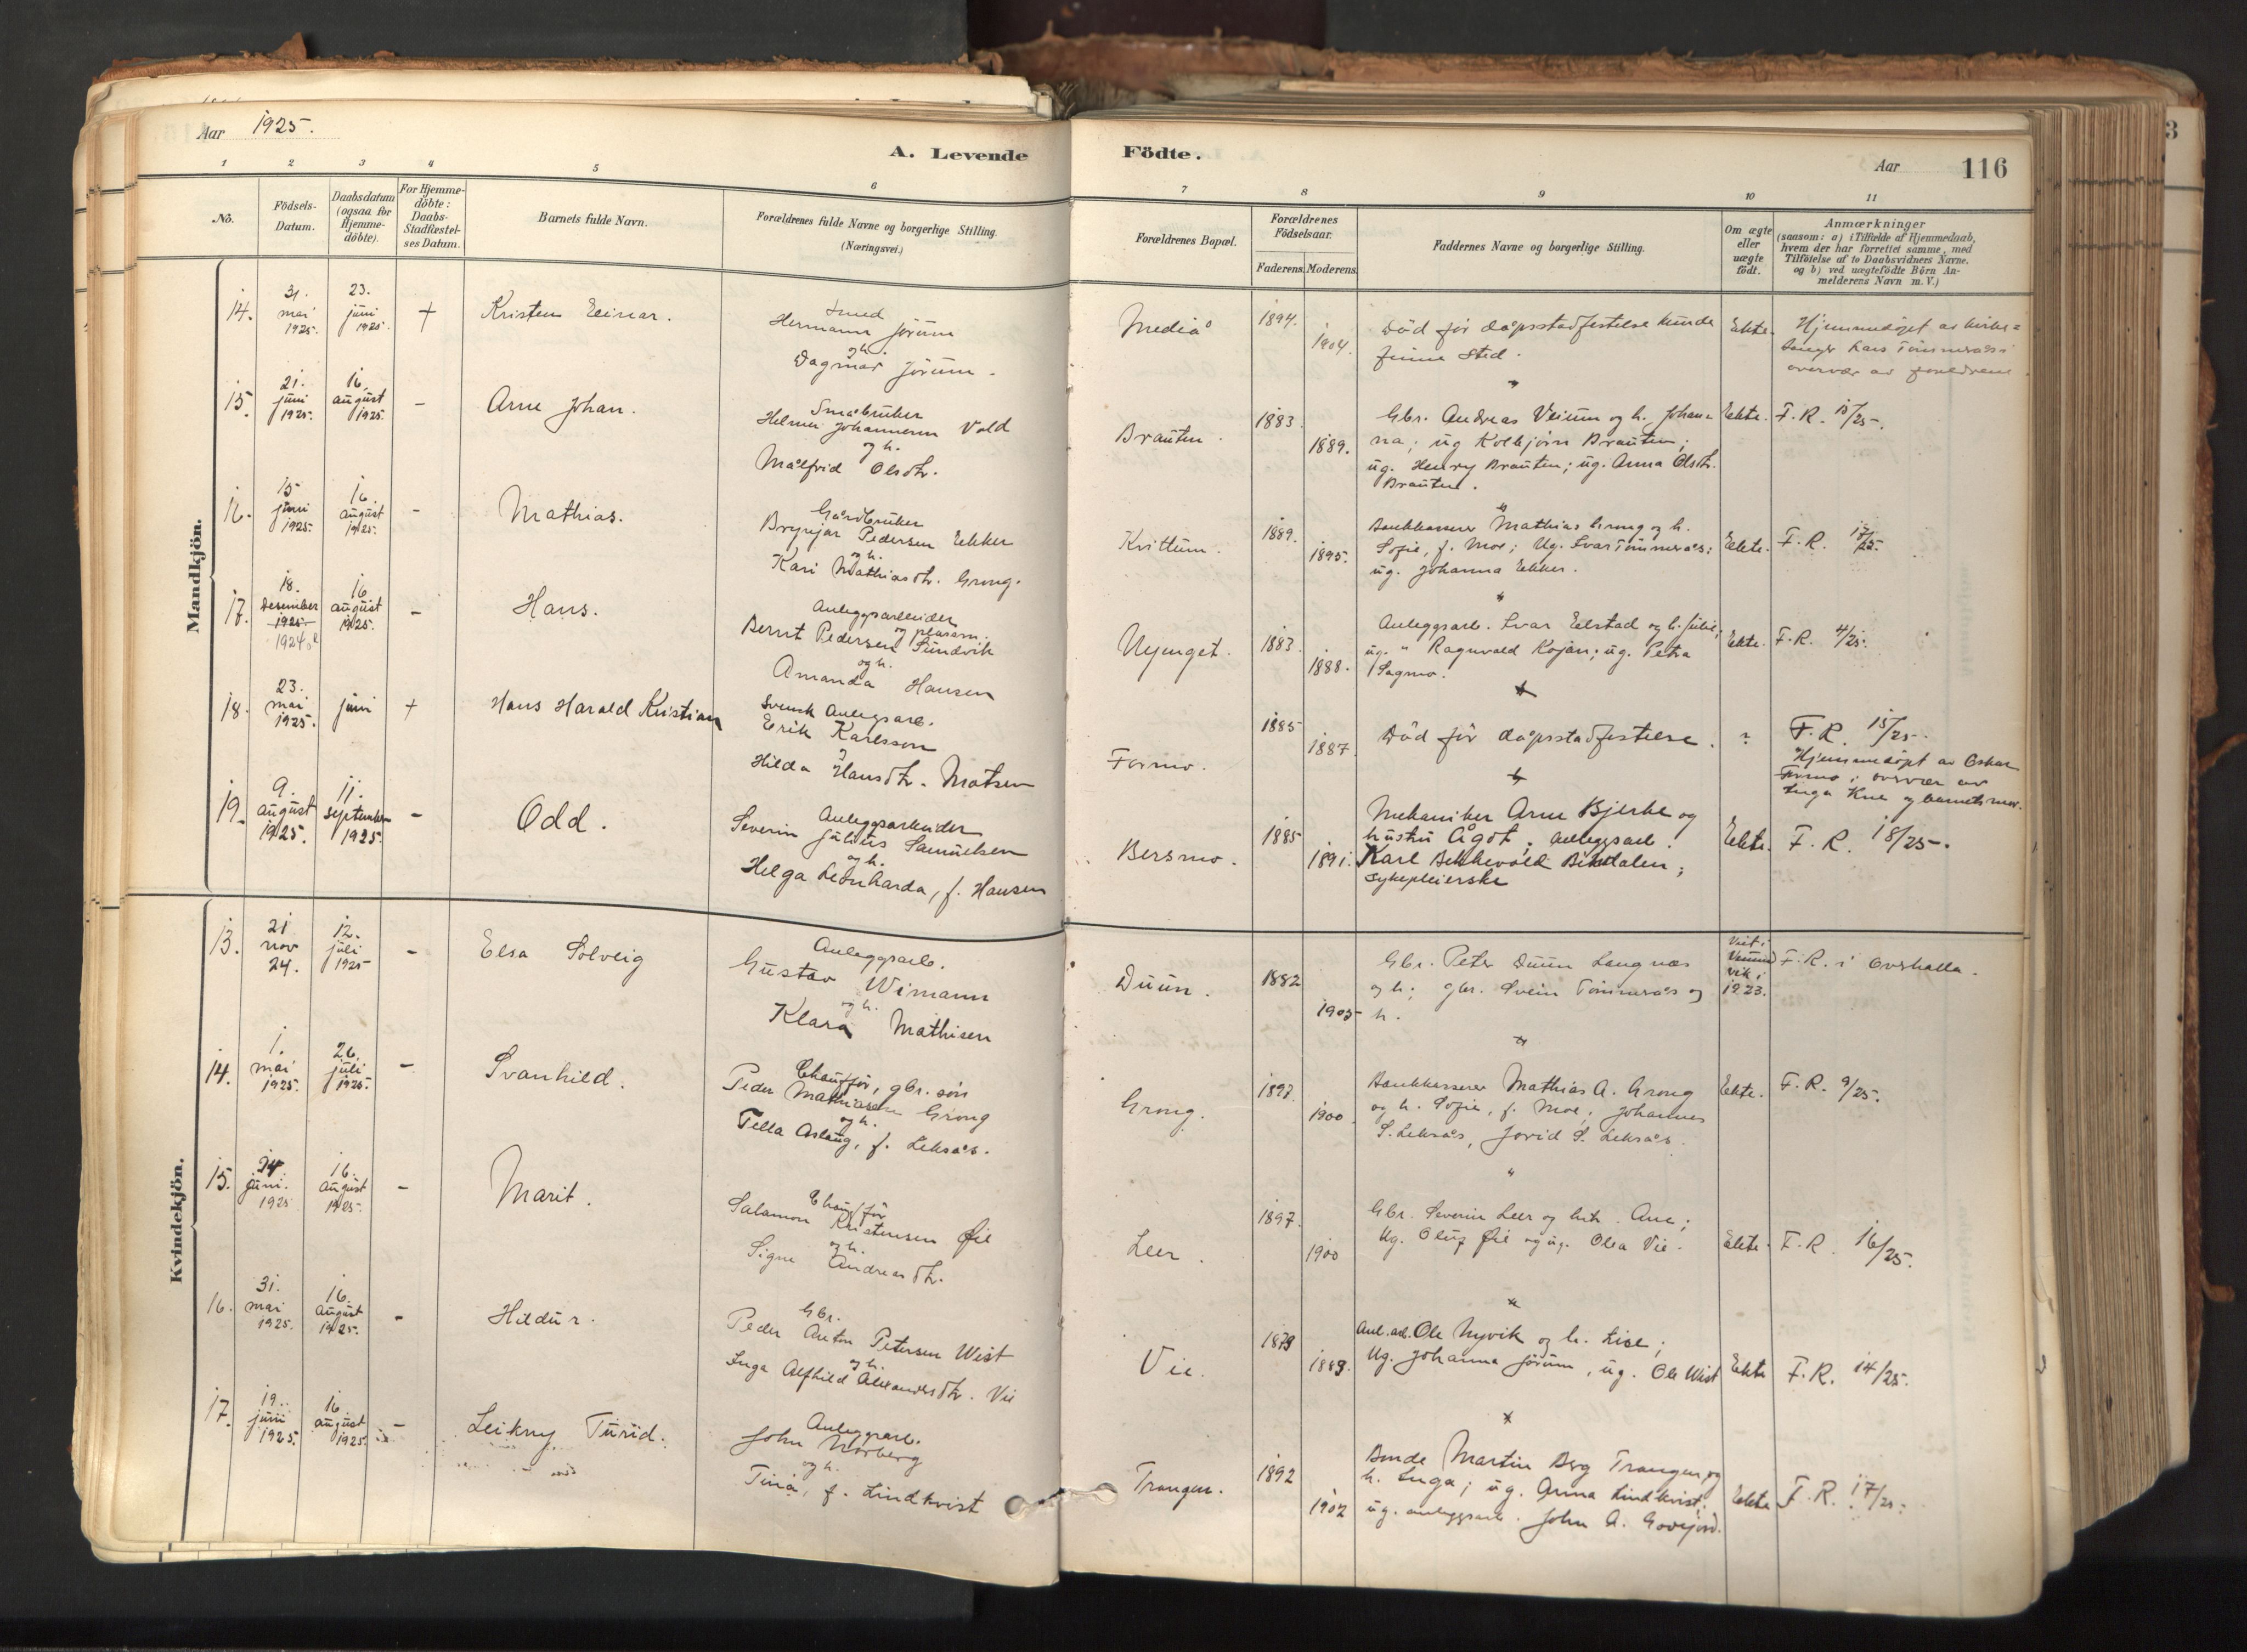 Aar 1925.
A. Levende
1 2 3 4 5 6
No.
Födsels-
Datum.
Daabsdatum
(ogsaa for
Hjemme-
döbte).
For Hjemme-
döbte:
Daabs-
Stadfæstel-
ses Datum.
Barnets fulde Navn.
Forældrenes fulde Navne og borgerlige Stilling.
(Næringsvei.)
Mandkjön.
14.
31.
mai
1925.
23.
juni
1925.
+
Kristen Einar.
Smed
Hermann Jørum
og h.
Dagmar Jørum.
15.
21.
juni
1925.
16.
august
1925.
-
Arne Johan.
Småbruker
Helmer Johannesen Vold
og h.
Målfrid Olsdtr.
16.
15
juni
1925.
16.
august
1925.
-
Mathias.
Gårdbruker
Brynjar Pedersen Ekker
og h.
Kari Mathiasdtr. Grong.
17.
18.
desember
1925.
1924
16
august
1925.
-
Hans.
Anleggsarbeider
og plassm.
Bernt Pedersen Sundvik
og h.
Amanda Hansen
18.
23.
mai
1925.
juni
+
Hans Harald Kristian
Svensk Anlegsarb.
Erik Karlsson
Hilda Hansdtr. Matsen
19.
9.
august
1925.
11.
september
1925.
-
Odd.
Anleggsarbeider
Severin Julius Samuelsen
og h.
Helga Leonharda, f. Hansen
Kvindekjön.
13.
21
nov
24.
12.
juli
1925
-
Elsa Solveig
Anleggsarb.
Gustav Wimann
og h.
Klara Mathisen
14.
1.
mai
1925.
26.
juli
1925.
-
Svanhild.
Chauffør, gbr. søn
Peder Mathiasen Grong
og h.
Tella Aslaug, f. Leksaas.
15.
24
juni.
1925
16.
august
1925.
-
Marit.
Chauffør
Salamon Kristensen Øie
og h.
Signe Andreasdtr.
16.
31.
mai
1925.
16.
august
1925.
-
Hildur.
Gbr.
Peder Anton Petersen Wist
og h.
Inga Alfhild Alexandersdtr. Vie
17.
19.
juni
1925.
16
august
1925.
-
Leikny Turid.
Anleggsarb.
John Norberg
og h.
Tina, f. Lindkvist
Födte.
Aar 116
7 8 9 10 11
Forældrenes Bopæl.
Forældrenes
Födselsaar.
Faderens. Moderens.
Faddernes Navne og borgerlige Stilling.
Om ægte
eller
uægte
födt.
Anmærkninger
(saasom: a) i Tilfælde af Hjemmedaab,
hvem der har forrettet samme, med
Tilföielse af to Daabsvidners Navne.
og b) ved uægtefödte Börn An-
melderens Navn m. V.)
Mediå
1894.
1904.
Död før dåpsstadfestelse kunde
finne sted.
Ekte.
Hjemmedøpt av kirke=
sanger Lars Tømmerås i
overvær av foreldrene
Brauten.
1883.
1889.
Gbr. Andreas Veium og h. Johan-
na; ug Kolbjørn Brauten;
ug. Henry Brauten; ug. Anna Olsdtr.
Brauten.
Ekte.
F. R. 15/25.
Kvittum.
1889.
1895.
Bankkasserer Mathias Grong og h.
Sofie, f. Moe; Ug. Ivar Tømmerås;
ug. Johanna Ekker.
Ekte.
F. R. 13/25.
1883.
1888.
Anleggsarb. Ivar Eilstad og h. Julie;
ug. " Ragnvald Kojan; ug. Petra
Sagmo.
Ekte.
F. R. 4/25.
Formo.
1885
1887.
Död før dåpsstadfestelse.
?
F. R. 15/25.
Hjemmedøpt av Oskar
Formo i overvær av
Inga Kne og barnets mor.
Bersmo.
1885
1891.
Mekaniker Arne Bjerke og
hustru Ågot; anleggsarb.
Karl Bekkevold Bekdalen;
sykepleierske
Ekte.
F. R. 18/25.
Duun.
1882
1905
Gbr. Peter Duun Langnes
og h; gbr. Svein Tømmerås og
h.
Viet i
Vemund
vik i
1923.
F. R. i Overhalla.
Grong.
1897.
1900.
Bankkasserer Mathias A. Grong
og h. Sofie, f. Moe; Johannes
S. Leksås, Jorid S. Leksås.
Ekte.
F. R. 9/25.
Leer.
1897.
1900
Gbr. Severin Leer og hut. Ane;
Ug. Oluf Øie og ug. Olea Vie.
Ekte.
F. R. 16/25.
Vie.
1879
1889.
Anl.arb. Ole Nyvik og h. Lise;
Ug. Johanna Jørum, ug. Ole Wist
Ekte
F. R. 14/25.
Trangen.
1892
1902
Bonde Martin Berg Trangen og
h. Inga; ug. Anna Lindkvist.
ug. anleggsarb. John A.
Ekte
F. R. 17/25.